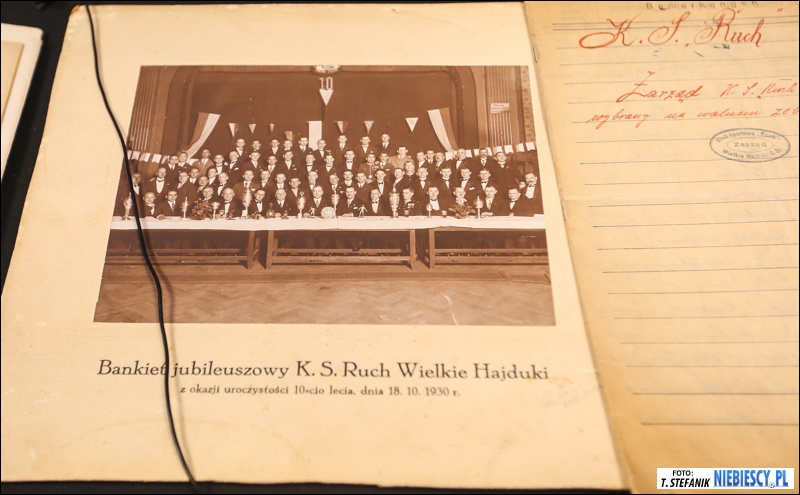 10
Bankiet jubileuszowy K. S. Ruch Wielkie Hajduki
z okazji uroczystości 10-cio lecia, dnia 18. 10. 1930 r.
Bemerkungen
K. S. "Ruch"
Zarząd K. S. Ruch
wybrany na walnem
Zarząd
Wielkie Hajduki
FOTO:
T. STEFANIK NIEBIESCY.PL